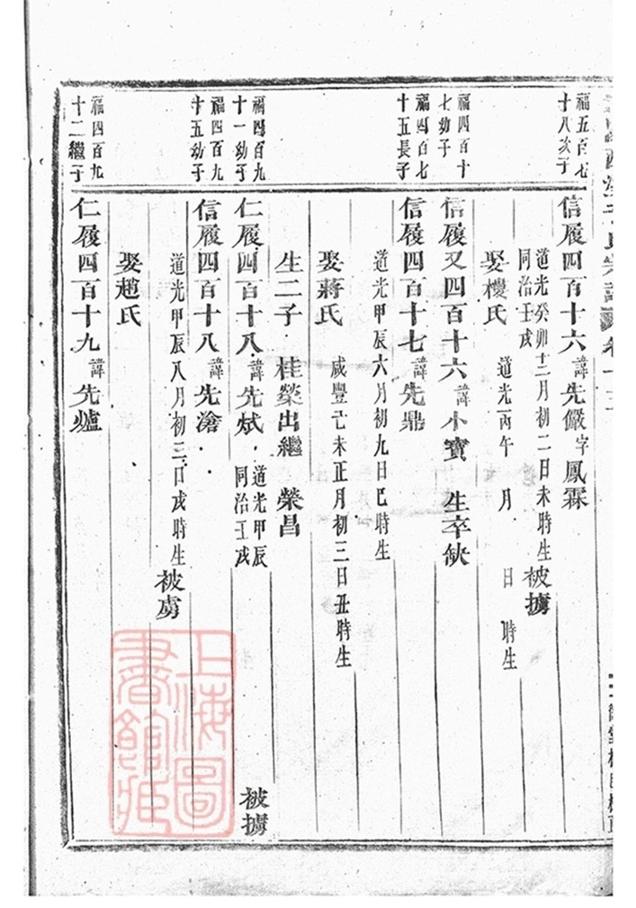 福五百七
十八次子
信履四百十六諱先儼字鳳霖
道光癸卯十二月初二日未時生
同治壬戌
被擄
娶樓氏
道光丙午 月 日 時生
福四百十
七幼子
信履又四百十六諱小寶 生卒缺
福四百七
十五長子
信履四百十七諱先鼎
道光甲辰六月初九日巳時生
娶蔣氏
咸豐己未正月初三日丑時生
生二子 桂榮出繼 榮昌
福四百九
十一幼子
仁履四百十八諱先斌
道光甲辰
同治壬戌
被擄
福四百九
十五幼子
信履四百十八諱先滄
道光甲辰八月初三日戌時生
被虜
娶趙氏
福四百九
十二繼子
仁履四百十九諱先爐
上海圖
書館藏